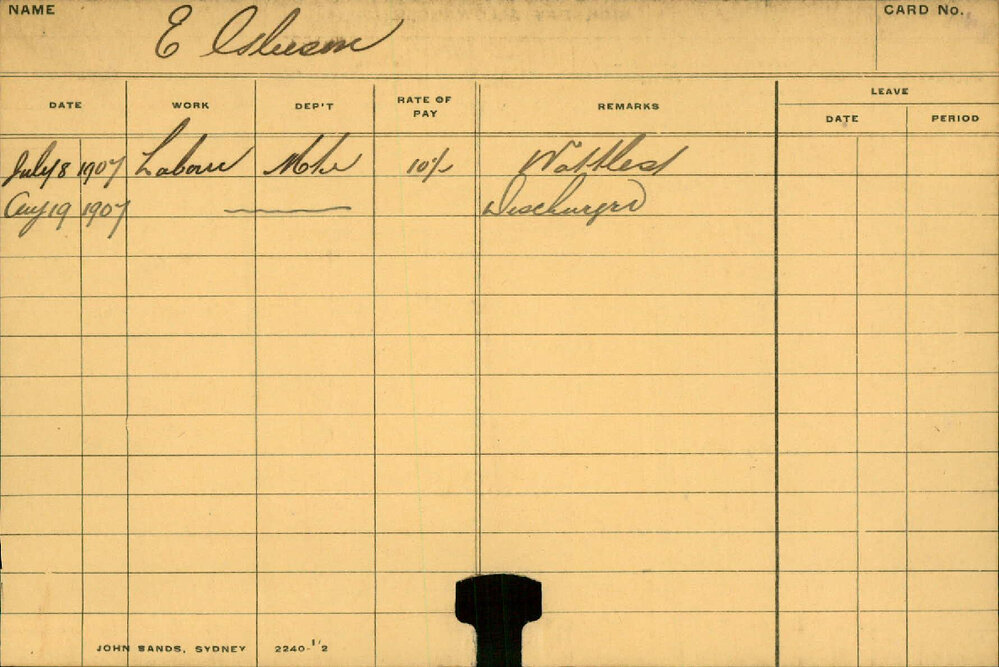 NAME
CARD No.
E Gleeson
DATE WORK DEP'T RATE OF PAY REMARKS LEAVE
DATE PERIOD
July 8 1907 Labour 10/-
Aug 19 1907 Discharged
JOHN SANDS, SYDNEY 2240-1/2